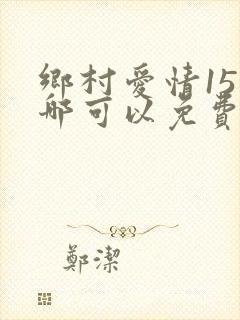 鄉村愛情15
哪可以免費
鄭潔